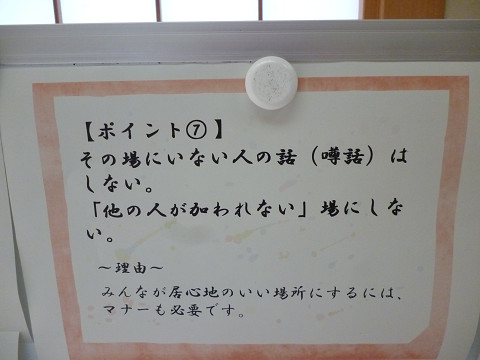 【ポイント⑦】
その場にいない人の話（噂話）は
しない。
「他の人が加われない」場にしな
い。
～理由～
みんなが居心地のいい場所にするには、
マナーも必要です。